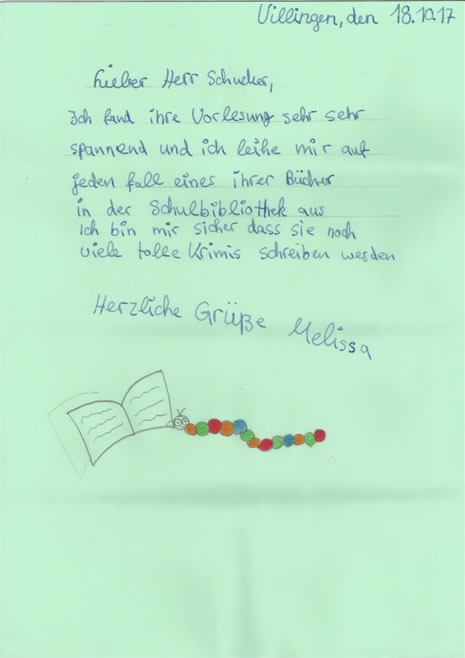 Villingen, den 18.10.17
Lieber Herr Schucker,
Ich fand ihre Vorlesung sehr sehr
spannend und ich leihe mir auf
jeden fall eines ihrer Bücher
in der Schulbibliothek aus
Ich bin mir sicher dass sie noch
viele tolle Krimis schreiben werden
Herzliche Grüße Melissa